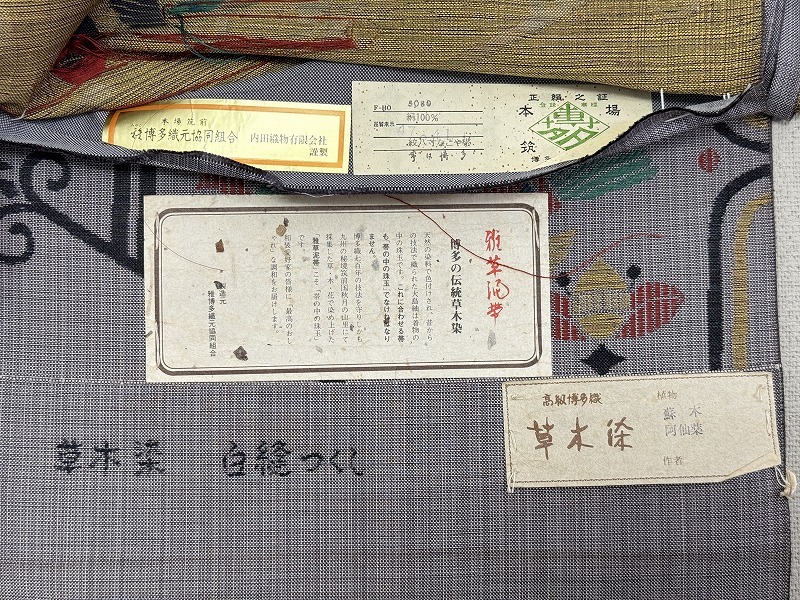 本場筑前
雅博多織元協同組合 内田織物有限会社
謹製
正絹之証
本場
筑
博多
F-110
8080
絹100%
雅草泥帯
博多の伝統草木染
天然の染料で色付けされ、昔から
の技法で織られた大島紬は着物の
中の珠玉です。これに合わせる帯
も、帯の中の珠玉でなければなり
ません。
博多織七百年の技法を守りしかも
九州の秘境筑前国秋月の山里にて
採集した草・木・花で染め上げた
「雅草泥帯」こそ「帯の中の珠玉」
です。
和装愛好家の皆様に、最高のおし
ゃれな調和をお届けします。
製造元
雅博多織元協同組合
高級博多織
草木染
植物
蘇木
阿仙薬
作者
草木染 白縫つくし